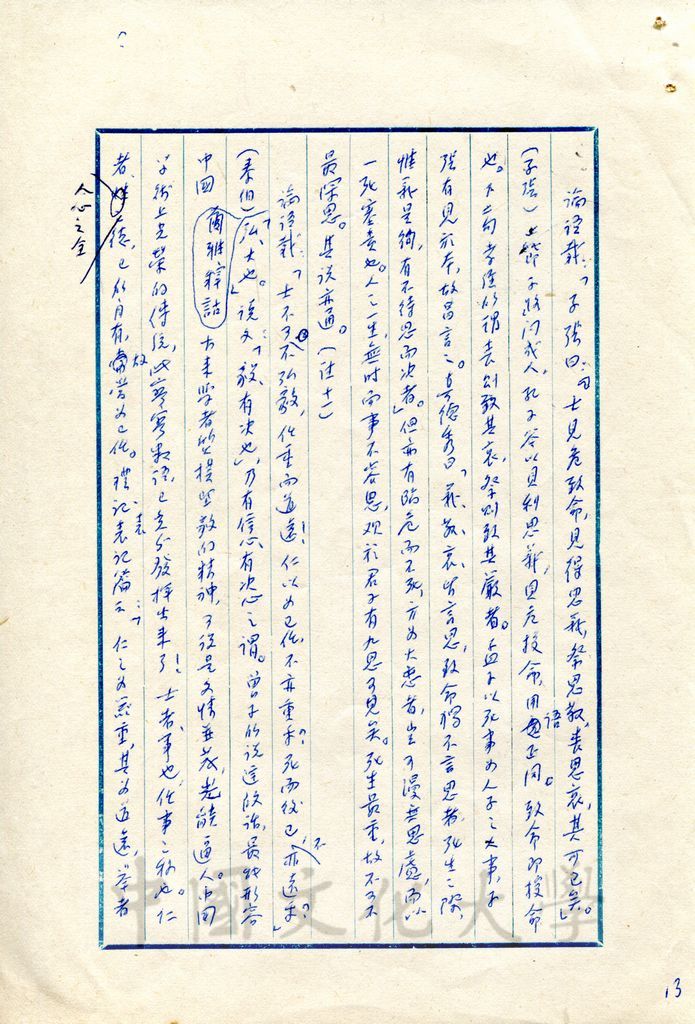 論語載：「子張曰：『士見危致命，見得思義，祭思敬，喪思哀，其可已矣』。」
（子張）上節子路問成人，孔子答以見利思義，見危授命，用語正同。致命即授命
也。下句孝經所謂喪則致其哀，祭則致其嚴者。孟子以死事為人子之大事，子
張有見於本，故昌言之。真德秀曰「義敬哀，皆言思，致命獨不言思者，死生之際，
惟義是徇，有不待思而決者。」但亦有臨危而不死，方為大忠者，豈可漫無思慮，而以
一死塞責也。人之一生，無時而事不容思，观於君子有九思可見矣。死生最重，故不可不
最深思。其說亦通。（註十一）
論語載：「士不可不弘毅，任重而道遠！仁以為己任，不亦重乎？死而後已，不亦遠乎？」
（泰伯）「弘，大也。」說文：「毅，有決也」，乃有信心、有決心之謂。曾子的說這段話，最能形容
中國 爾雅釋詁 古來學者 提 的精神，可說是文情並茂，光 逼人。中国
學術上光榮的傳統，此寥寥數語，已充分發揮出來了！士者，事也，任事之称也。仁
者，人心之全德，已所自有，故當為己任。禮記表記篇云：「仁之為器重，其為道遠，舉者
中國文化大學
13